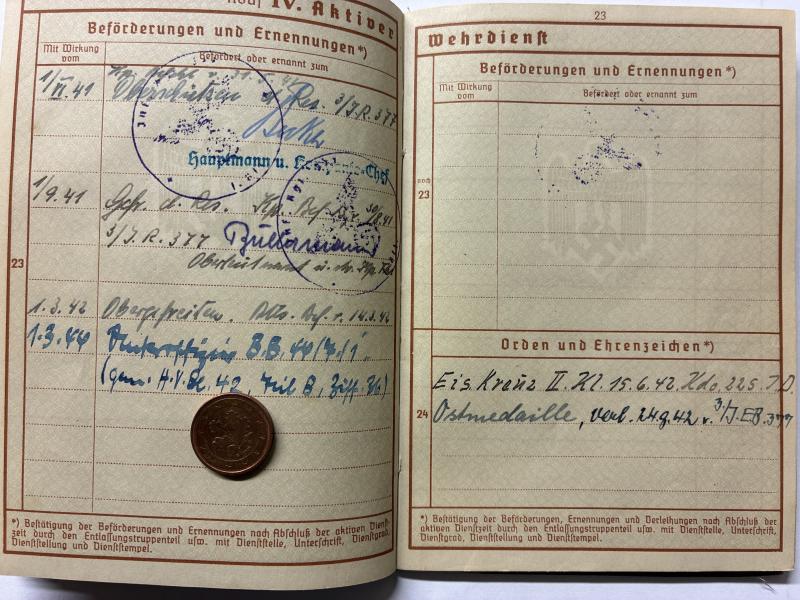 IV. Aktiver
Beförderungen und Ernennungen*)
Mit Wirkung vom
Befördert oder ernannt zum
1/VI.41
Oberschützen d. Res. 3/J.R. 377
Hauptmann u. Kompanie-Chef
1/9.41 Gefr. d. Res. Kp. Bef. v. 30/8.41
3/J.R. 377
Oberleutnant u.
23
1.3.42 Obergefreiten. Btls. Bef. v. 14.3.42
1.3.44 Unteroffizier
(gem. H.V.Bl. 42, Teil B, Ziff.
*) Bestätigung der Beförderungen und Ernennungen nach Abschluß der aktiven Dienst-
zeit durch den Entlassungstruppenteil usw. mit Dienststelle, Unterschrift, Dienstgrad,
Dienststellung und Dienststempel.
23
Wehrdienst
Beförderungen und Ernennungen*)
Mit Wirkung vom
Befördert oder ernannt zum
noch
23
Orden und Ehrenzeichen*)
Eis. Kreuz II. Kl. 15.6.42. Kdo. 225. J.D.
24
Ostmedaille, verl. 24.9.42 v. 3/J.EB. 377
*) Bestätigung der Beförderungen, Ernennungen und Verleihungen nach Abschluß der
aktiven Dienstzeit durch den Entlassungstruppenteil usw. mit Dienststelle, Unterschrift,
Dienstgrad, Dienststellung und Dienststempel.